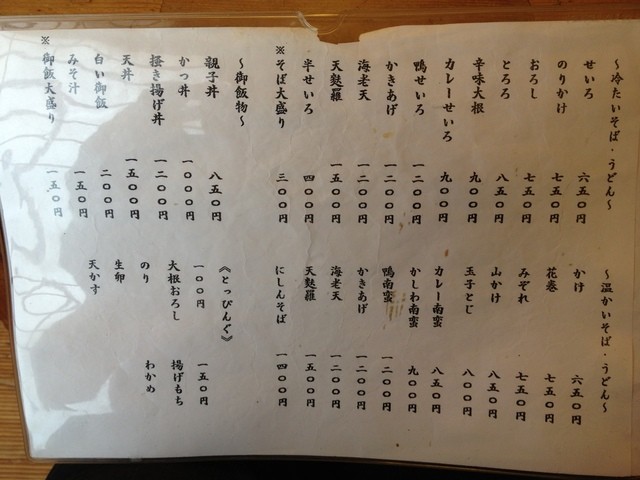 〜冷たいそば・うどん〜
せいろ 六五〇円
のりかけ 七五〇円
おろし 七五〇円
とろろ 八五〇円
辛味大根 九〇〇円
カレーせいろ 九〇〇円
鴨せいろ 一二〇〇円
かきあげ 一二〇〇円
海老天 一二〇〇円
天麩羅 一五〇〇円
半せいろ 四〇〇円
※そば大盛り 三〇〇円
〜御飯物〜
親子丼 八五〇円
かつ丼 一〇〇〇円
掻き揚げ丼 一二〇〇円
天丼 一五〇〇円
白い御飯 二〇〇円
みそ汁 一五〇円
※御飯大盛り 一五〇円
〜温かいそば・うどん〜
かけ 六五〇円
花巻 七五〇円
みぞれ 七五〇円
山かけ 八五〇円
玉子とじ 八〇〇円
カレー南蛮 八五〇円
かしわ南蛮 九〇〇円
鴨南蛮 一二〇〇円
かきあげ 一二〇〇円
海老天 一二〇〇円
天麩羅 一五〇〇円
にしんそば 一四〇〇円
《とっぴんぐ》
一〇〇円 一五〇円
大根おろし 揚げもち
のり わかめ
生卵
天かす